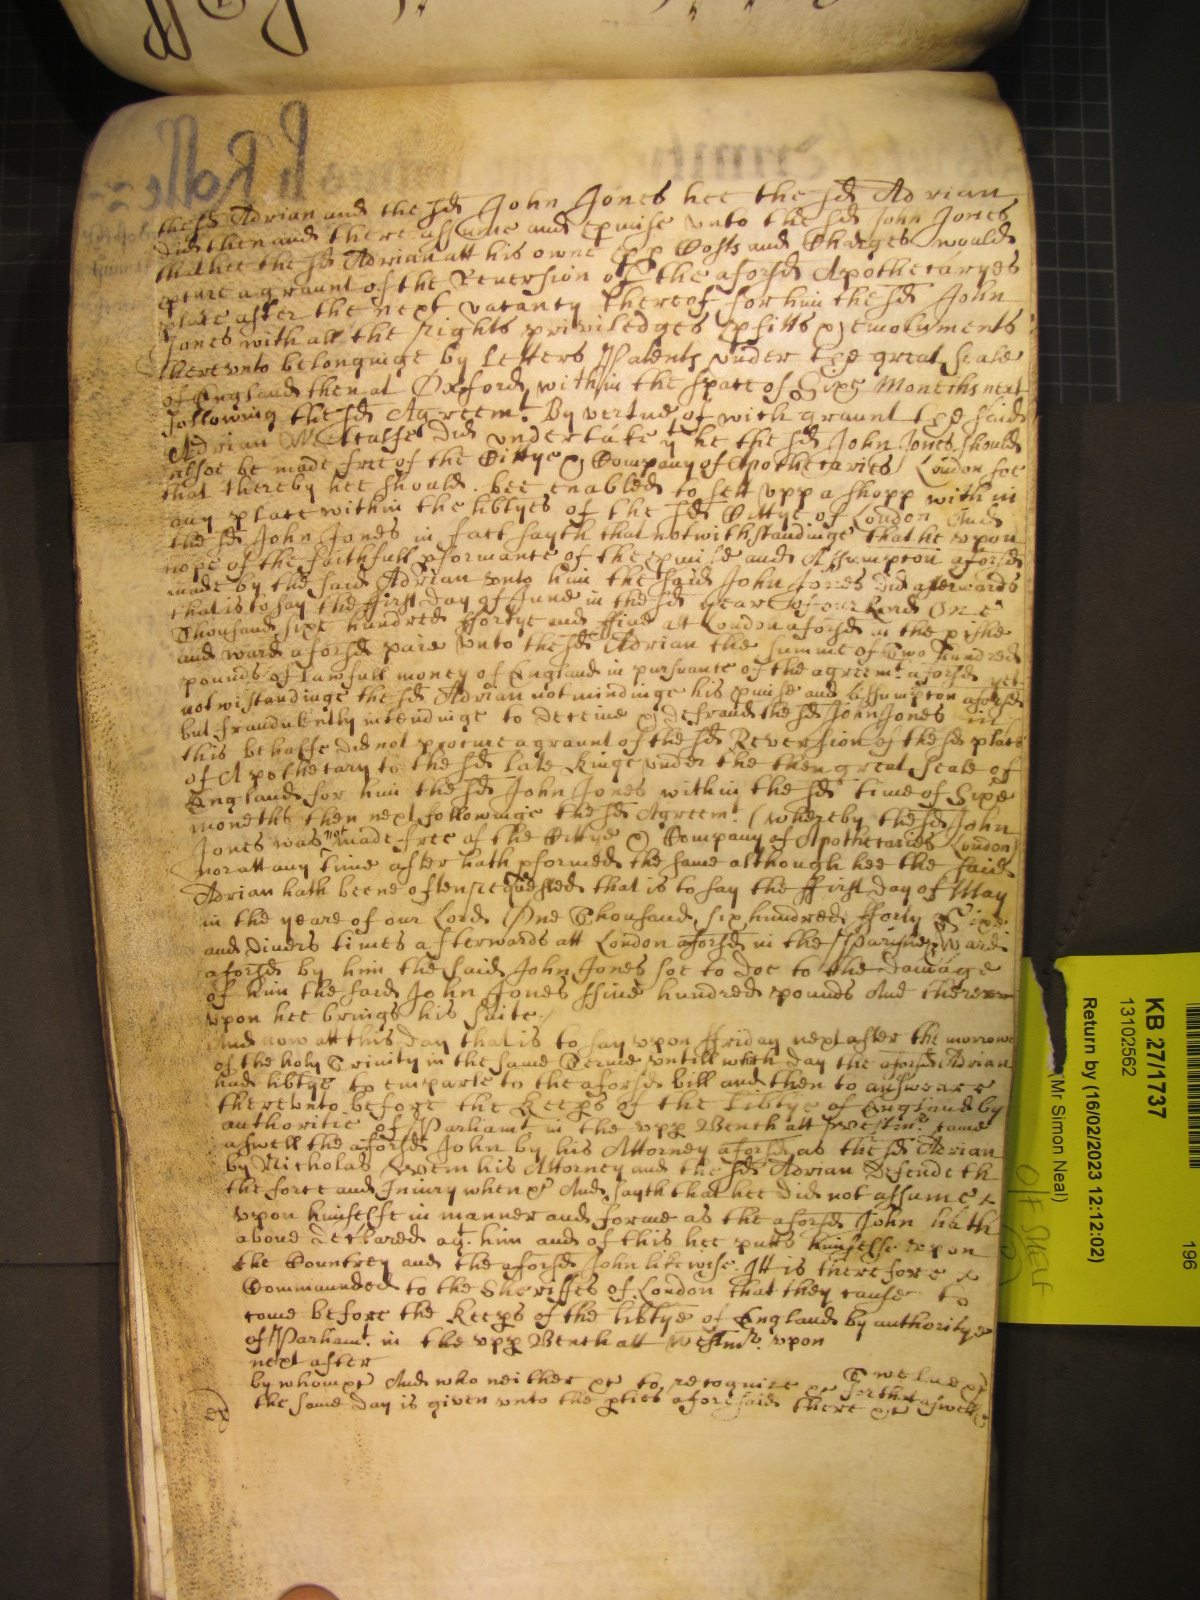 the sd Adrian and the sd John Jones hee the sd Adrian
did then and there assume and pmise vnto the sd John Jones
that hee the sd Adrian att his owne Costs and Charges would
pcure a graunt of the Reversion of the aforsd Apothecaryes
place after the next vacancy thereof for him the sd John
Jones with all the rights priviledges pfitts & emoluments
therevnto belonginge by letters Pattents vnder the great Seale
of England then at Oxford within the space of Sixe Moneths next
following the sd Agreemt. By vertue of wch graunt the said
Adrian did vndertake yt he the sd John Jones should
alsoe be made free of the Cittye & Company of Apothecaries London soe
that thereby hee should bee enabled to sett vpp a shopp within
any place within the libtyes of the sd Cittye of London And
the sd John Jones in fact sayth that notwithstandinge that he vpon
hope of the faithfull pformance of the pmise and Assumpton aforsd
made by the said Adrian vnto him the said John Jones did afterwards
that is to say the ffirst day of June in the sd yeare of our Lord One
Thousand sixe hundred ffortye and ffive att London aforsd in the pishe
and ward aforsd paie vnto the sd Adrian the summe of Two hundred
pounds of lawfull money of England in pursuance of the agreemt aforsd yet
notwistandinge the sd Adrian not mindinge his pmise and Assumpton aforsd
but fraudulently intendinge to deceive & defraud the sd John Jones in
this behalfe did not pcure a graunt of the sd Reversion of the sd place
of Apothecary to the sd late Kinge vnder the then great Seale of
England for him the sd John Jones within the sd time of Sixe
moneths then next followinge the sd Agreemt. (whereby the sd John
Jones was not made free of the Cittye & Company of Apothecaries London)
nor att any time after hath pformed the same although hee the said
Adrian hath beene often requested that is to say the ffirst day of May
in the yeare of our Lord One Thousand six hundred fforty & Sixe
and divers times afterwards att London aforsd in the Parishe & Ward
aforsd by him the said John Jones soe to doe to the damage
of him the said John Jones ffive hundred pounds And there
vpon hee brings his suite./
And now att this day that is to say vpon ffriday next after the morrow
of the holy Trinity in the same Terme vntill which day the aforsd Adrian
had libtye to emparle to the aforsd bill and then to answeare
therevnto before the Keeps of the libtye of England by
authoritie of Parliamt in the vpp Bench att Westmr came
aswell the aforsd John by his Attorney aforsd as the sd Adrian
by Nicholas his Attorney and the sd Adrian defendeth
the force and Iniury when &c And sayth that hee did not assume
vpon himselfe in manner and forme as the aforsd John hath
above declared agt. him and of this hee putts himselfe vpon
the Countrey and the aforsd John likewise. Itt is therefore
Commaunded to the Sheriffes of London that they cause to
come before the Keeps of the libtye of England by authoritye
of Parliamt. in the vpp Bench att Westmr. vpon
next after Twelve &c
by whom &c And who neither &c to recognize &c forthat aswell &c
the same day is given vnto the pties aforesaid there &c
KB 27/1737
13102562
Return by (16/02/2023 12:12:02)
(Mr Simon Neal)
196
Off Shelf